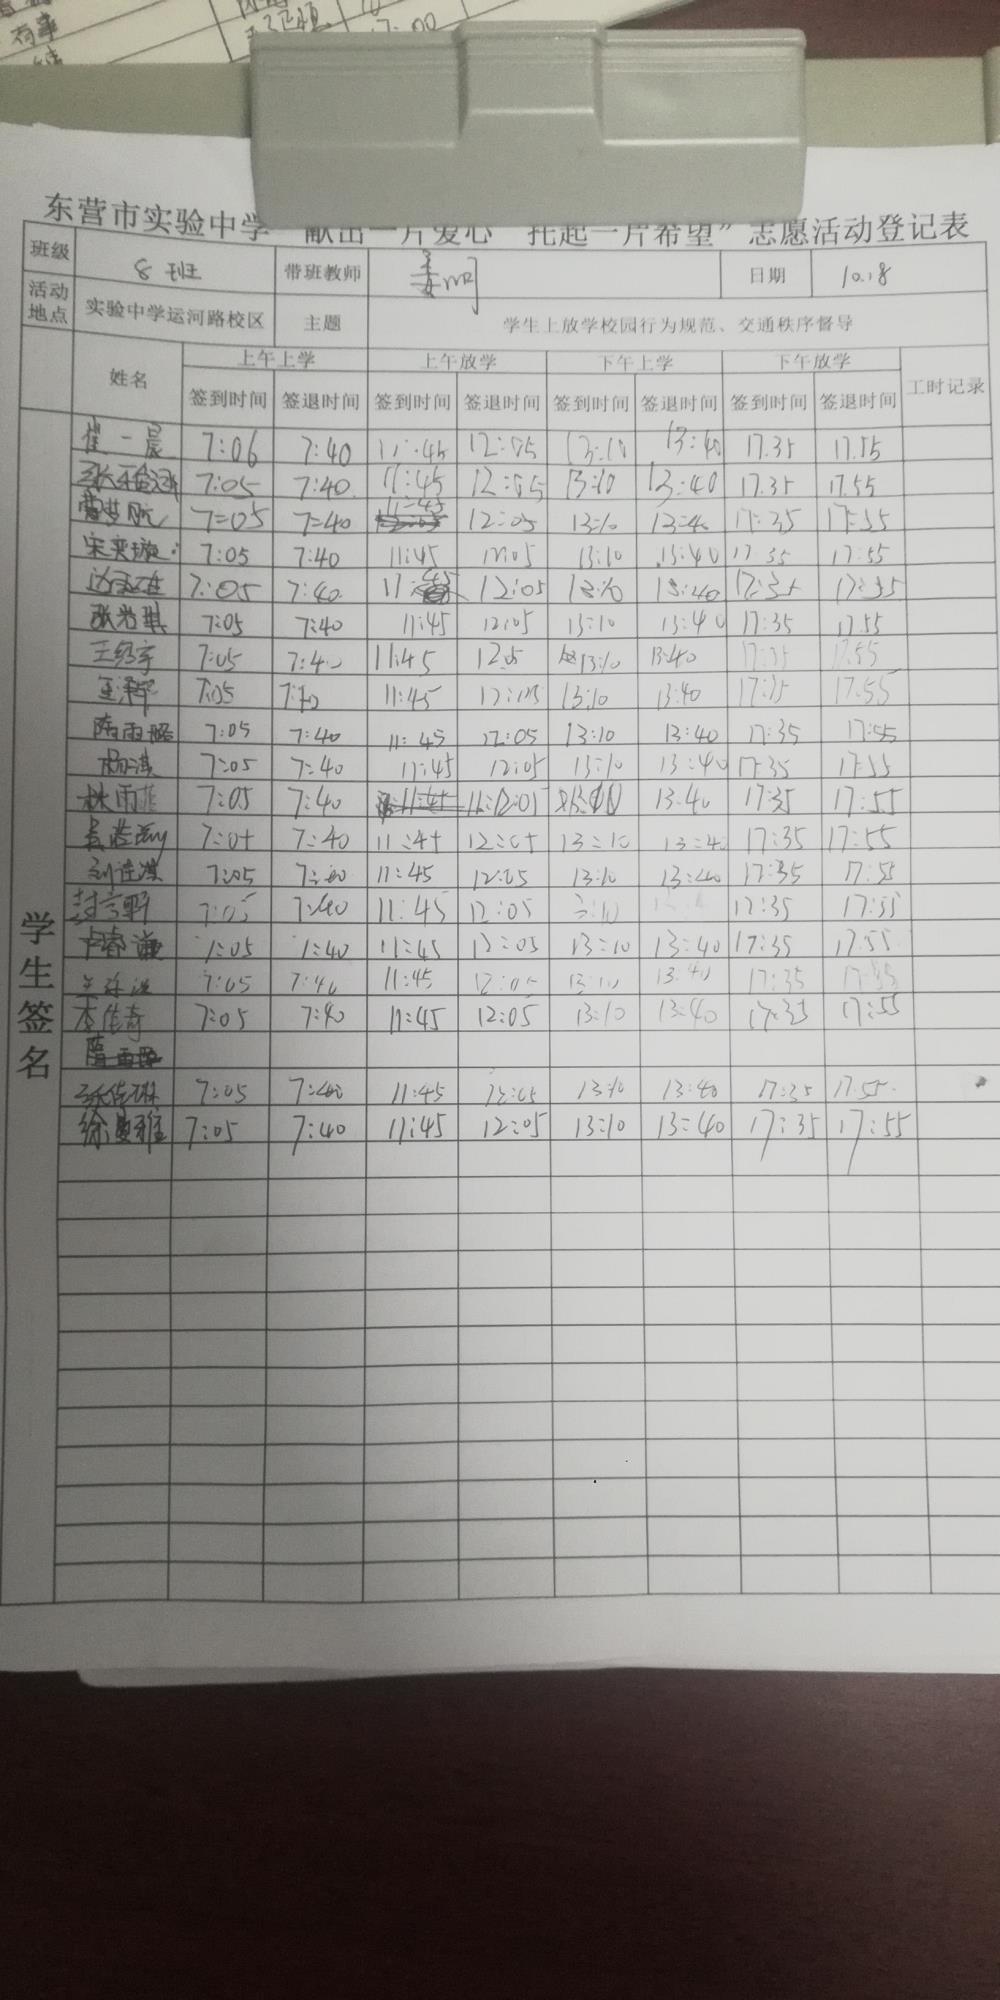 有事
17:00
东营市实验中学“献出一片爱心 托起一片希望”志愿活动登记表
班级 8班 带班教师 日期 10.18
活动地点 实验中学运河路校区 主题 学生上放学校园行为规范、交通秩序督导
姓名 上午上学 上午放学 下午上学 下午放学 工时记录
签到时间 签退时间 签到时间 签退时间 签到时间 签退时间 签到时间 签退时间
学生签名
崔一晨 7:06 7:40 11:45 12:05 13:10 13:40 17.35 17.55
7:05 7:40 11:45 12:05 13:10 13:40 17.35 17.55
曹梦凡 7:05 7:40 11:45 12:05 13:10 13:40 17:35 17:55
宋奕璇 7:05 7:40 11:45 12:05 13:10 13:40 17:35 17:55
7:05 7:40 11:45 12:05 13:10 13:40 17:35 17:35
张岩琪 7:05 7:40 11:45 12:05 13:10 13:40 17:35 17.55
王绍宇 7:05 7:40 11:45 12:05 13:10 13:40 17:35 17.55
7:05 7:40 11:45 12:05 13:10 13:40 17:35 17.55
隋雨彤 7:05 7:40 11:45 12:05 13:10 13:40 17:35 17:55
杨淇 7:05 7:40 11:45 12:05 13:10 13:40 17:35 17:55
7:05 7:40 11:45 12:05 13:10 13:40 17:35 17:55
7:05 7:40 11:45 12:05 13:10 13:40 17:35 17:55
刘佳淇 7:05 7:40 11:45 12:05 13:10 13:40 17:35 17:55
7:05 7:40 11:45 12:05 13:10 17:35 17:55
卢春谦 7:05 7:40 11:45 12:05 13:10 13:40 17:35 17.55
7:05 7:40 11:45 12:05 13:10 13:40 17:35 17:55
李佳奇 7:05 7:40 11:45 12:05 13:10 13:40 17:35 17:55
张佳琳 7:05 7:40 11:45 12:05 13:10 13:40 17:35 17.55
徐曼雅 7:05 7:40 11:45 12:05 13:10 13:40 17:35 17:55